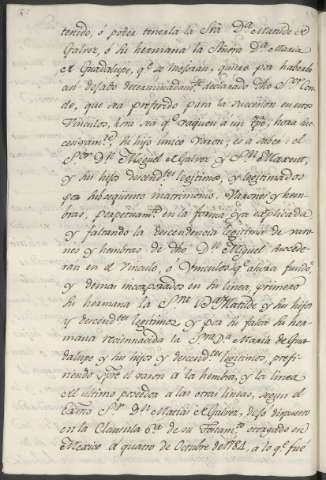 tenido, ó poder tenerla la Srã Dª Matilde de
Galvez, ó su hermana la Señora Dª Maria
de Guadalupe, qᵉ se mejoran, quiere por haberlo
asi dejado determinadamᵗᵉ declarado dho Sᵒʳ Con-
de, que sea preferido para la succesion en otros
Vinculos, con sea qᵉ recaquen á un tpõ, hera ne-
cesariamᵗᵉ, su hijo unico Varon; es á saber: el
Sᵒʳ Dⁿ Miguel de Galvez y Sⁿ Maxent,
y sus hijos descendᵗᵉˢ legitimos, y legitimados
por subsiguiente matrimonio, Varones y hem-
bras, perpetuamᵗᵉ en la forma ya explicada
y faltando la descendencia legitima de varo-
nes y hembras de dho Dⁿ Miguel succede-
rán en el Vinculo, ó Vinculos qᵉ ahora fundó,
y demas incorporados en su linea, primero
su hermana la Sʳª Dª Matilde y sus hijos
y descendᵗᵉˢ legitimos y por su falta su her-
mana recienacida la Sʳª Dª Maria de Gua-
dalupe y sus hijos y descendᵗᵉˢ legitimos, prefi-
riendo sprẽ el varon á la hembra, y la linea
del ultimo poseedor á las otras lineas, segun el
Exmõ Sᵒʳ Dⁿ Matias de Galvez, dejó dispuesto
en la Clausula 6ª de su Testamᵗᵒ otorgado en
Mexico al quatro de Octubre de 1784, a lo qᵉ fué